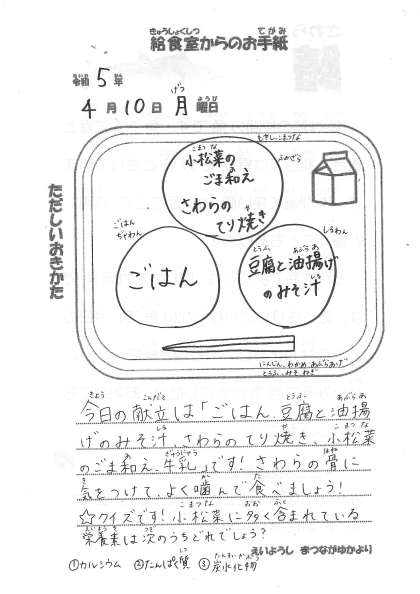 給食室からのお手紙
令和5年
4月10日月曜日
ただしいおきかた
もやし、こまつな
小松菜の
ごま和え
さわらの
てり焼き
ふかざら
ごはん
ぢゃわん
ごはん
しるわん
豆腐と油揚げ
のみそ汁
にんじん、わかめ、あぶらあげ
とうふ、みそ、ねぎ
今日の献立は「ごはん、豆腐と油揚
げのみそ汁、さわらのてり焼き、小松菜
のごま和え、牛乳」です!さわらの骨に
気をつけて、よく噛んで食べましょう!
☆クイズです!小松菜に多く含まれている
栄養素は次のうちどれでしょう?
えいようし まつながゆかより
①カルシウム ②たんぱく質 ③炭水化物